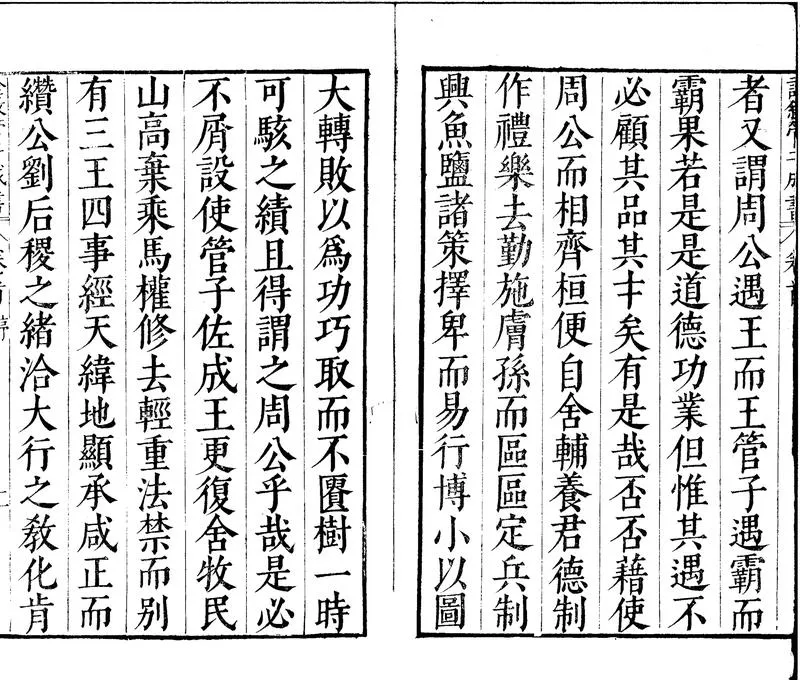 者又謂周公遇王而王管子遇霸而
霸果若是是道德功業但惟其遇不
必顧其品其才矣有是哉否否藉使
周公而相齊桓便自舍輔養君德制
作禮樂去勤施膚孫而區區定兵制
興魚鹽諸策擇卑而易行博小以圖
大轉敗以爲功巧取而不匱樹一時
可駭之績且得謂之周公乎哉是必
不屑設使管子佐成王更復舍牧民
山高棄乘馬權修去輕重法禁而别
有三王四事經天緯地顯承咸正而
纘公劉后稷之緒洽大行之敎化肯